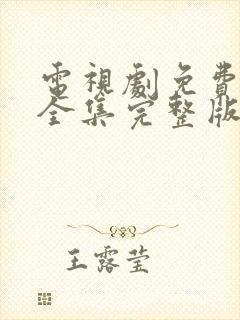 電視劇免費
全集完整版
王露莹